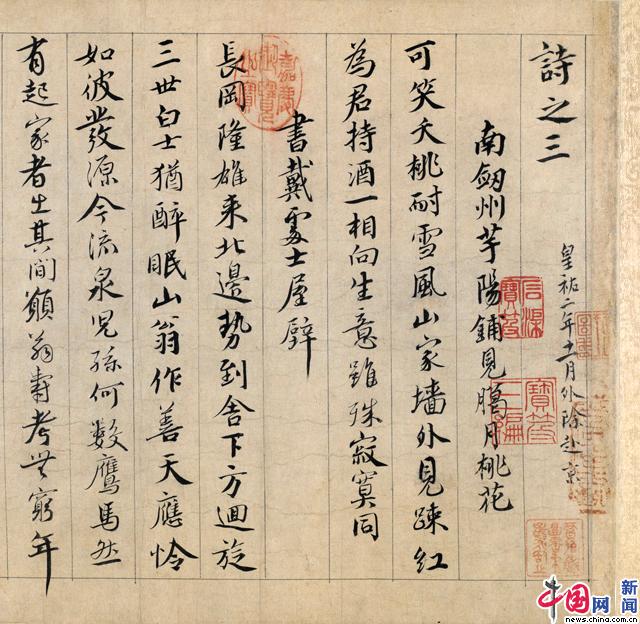 詩之三
皇祐二年十一月外除赴京
南劒州芋陽鋪見臈月桃花
可笑夭桃耐雪風山家墻外見踈紅
為君持酒一相向生意雖殊寂寞同
書戴處士屋壁
長岡隆雄來北邊勢到舍下方迴旋
三世白士猶醉眠山翁作善天應怜
如彼發源今流泉兒孫何數鷹馬然
有起家者出其間願翁壽考無窮年
中国网新闻
news.china.com.cn